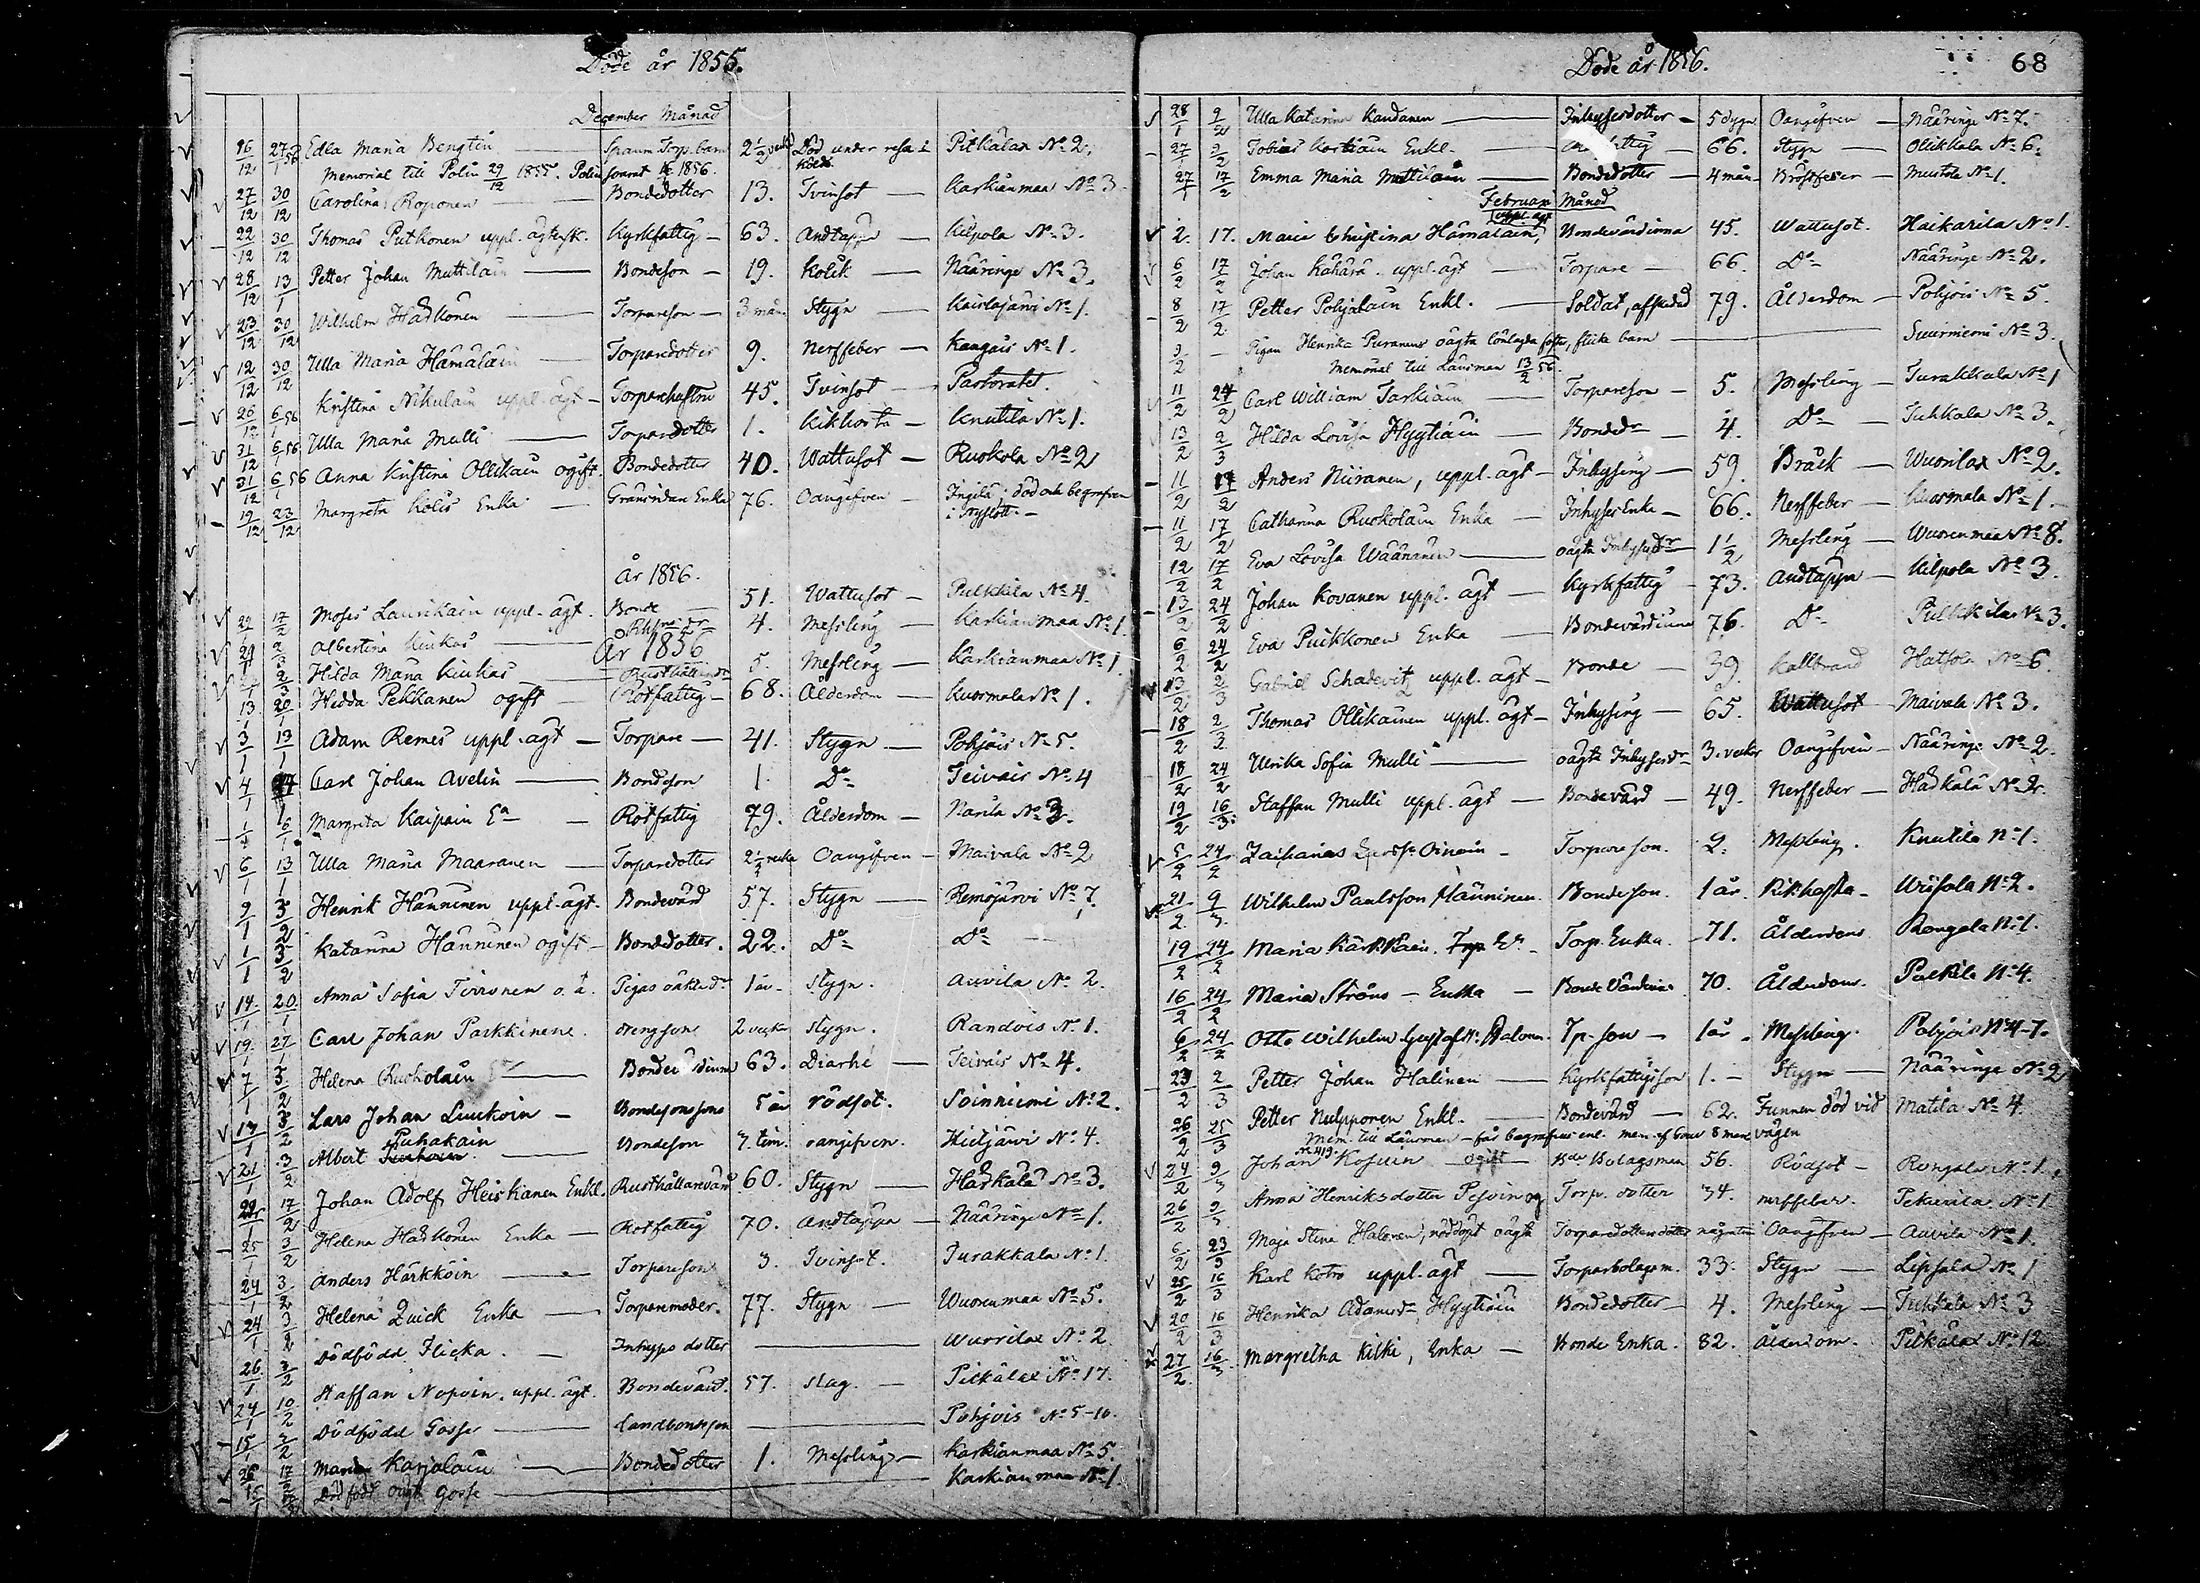 Döde år 1855.
December Månad
26/12 27/1 56 Edla Maria Bengtin — Torp. barn 2½ Död under resa i Pitkälax No 2.
köld.
Memorial till Polin 29/12 1855. 1856.
27/12 30/12 Carolina Roponen — Bondedotter 13. Tvinsot — Karkianmaa No 3.
22/12 30/12 Thomas Putkonen uppl. Kyrkfattig — 63. Andtäppa — Kilpola No 3.
28/12 13/1 Petter Johan Muttilain — Bondeson — 19. Kolik — Nääringe No 3.
23/12 30/12 Wilhelm Hadkonen — Torpareson — 3 mån. Stygn — No 1.
12/12 30/12 Ulla Maria Hämäläin — Torparedotter 9. Nerffeber — Kangais No 1.
Kristina Nikulain uppl. ägt — Torparehustru 45. Tvinsot — Pastoratet.
26/12 6/1 56 Ulla Maria Mulli — Torparedotter 1. Kikhosta — Knutila No 1.
31/12 6/1 56 Anna Kristina Ollikain ogift. Bondedotter 40. Wattusot — Ruokola No 2
31/12 6/1 56 Margreta Kolis Enka — Enka 76. Oangifven — död och begrafven
19/12 23/12 i Nyslott. —
År 1856.
22/1 17/2 Moses Laurikain uppl. ägt. Bonde — 51. Wattusot — Pulkkila No 4.
29/1 Albertina Kiukas — 4. Messling — Karkianmaa No 1.
År 1856
Hilda Maria Kiukas — 5. Messling — Karkianmaa No 1
13/1 20/1 Hedda Pekkanen ogift — Rotfattig — 68. Ålderdom — Kuormala No 1.
3/1 13/1 Adam Remes uppl. ägt — Torpare — 41. Stygn — Pohjois No 5.
4/1 Carl Johan Avelin — Bondeson 1. Do Teivais No 4
1/1 6/1 Margreta Kaipain Ea — Rotfattig 79. Ålderdom — Narila No 3.
6/1 13/1 Ulla Maria Maaranen — Torparedotter 2½ veckor Oangifven — Maivala No 2
9/1 3/2 Henrik Hänninen uppl. ägt. Bondevärd 57. Stygn — Remojärvi No 7.
1/1 3/2 Katarina Hänninen ogift — Bondedotter. 22. Do Do —
14/1 20/1 Anna Sofia Tirronen o. ä. Pigas 1 år. Stygn. Auvila No 2.
19/1 27/1 Carl Johan Parkkinene. drengson 2 veckor Stygn. Randois No 1.
7/1 3/2 Helena Ruokolain — Bondevärdinna 63. Diarhé — Teivais No 4.
17/1 3/2 Lars Johan Luukoin — Bondesonsson 5 år rödsot. Soinniemi No 2.
21/1 3/2 Albert Puhakain — Bondeson 7 tim. oangifven. Hietjärvi No 4.
17/2 Johan Adolf Heiskanen Enkl. Rusthållarevärd 60. Stygn — Hadkala No 3.
25/1 3/2 Helena Hadkonen Enka — Rotfattig 70. Andtäppa — Nääringe No 1.
24/1 3/2 Anders Härkköin — Torpareson 3. Tvinsot. Turakkala No 1.
24/1 3/2 Helena Quick Enka — Torparemoder. 77. Stygn — Wuorenmaa No 5.
26/1 3/2 Dödfödd Flicka. — Inhyses dotter — Wuorilax No 2
24/1 10/2 Staffan Nopoin. uppl. ägt. Bondevärd. 57. slag. — Pitkälax No 17.
15/1 3/2 Dödfödd Gosse — Landbondeson — Pohjois No 5-10.
26/1 17/2 Maria Karjalain — Bondedotter 1. Messling — Karkianmaa No 5.
15/1 Dödfödd oägt Gosse — Karkianmaa No 1
Döde år 1856. 68
28/1 9/2 Ulla Katarina Kandanen — Inhysesdotter — 5 dygn Oangifven — Nääringe No 7.
27/1 9/2 Tobias Enkl. — 66. Stygn — Olikkala No 6.
27/1 17/2 Emma Maria Mattilain — Bondedotter — 4 mån. Bröstfeber — Mustola No 1.
Februari Månad
uppl. ägt
2. 17. Maria Christina Hämäläin, Bondevärdinna 45. Wattusot. Haikarila No 1.
6/2 17/2 Johan Kähärä. uppl. ägt — Torpare — 66. Do Nääringe No 2.
8/2 17/2 Petter Pohjalain Enkl. — Soldat, afskedad 79. Ålderdom — Pohjois No 5.
3/2 — Pigan Henrika Puranens oägta flicka barn — Suurniemi No 3.
Memorial till Länsman 13/2 56.
11/2 24/2 Carl William Tarkiain — Torpareson — 5. Messling — Turakkala No 1
13/2 2/3 Hilda Lovisa Hyytiäin — Bondedr — 4. Do — Tuhkala No 3.
11/2 17/2 Anders Niiranen, uppl. ägt — Inhysing — 59. Bråck — Wuorilax No 2.
11/2 17/2 Catharina Ruokolain Enka — Inhyses Enka — 66. Nerffeber — Kuormala No 1.
12/2 17/2 Eva Lovisa Wäänänen — oägta Inhysesdr — 1½ Messling — Wuorenmaa No 8.
13/2 24/2 Johan Kovanen uppl. ägt — Kyrkfattig — 73. Andtäppa — Kilpola No 3.
6/2 24/2 Eva Puikkonen Enka — Bondevärdinna 76. Do — Pulkkila No 3.
13/2 2/3 Gabriel Schadevitz uppl. ägt — Bonde — 39. Kallbrand Hatsola No 6.
18/2 2/3 Thomas Ollikainen uppl. ägt — Inhysing — 65. Wattusot — Maivala No 3.
18/2 24/2 Ulrika Sofia Mulli — oägta Inhysesdr 3. veckor Oangifven — Nääringe No 2.
19/2 16/3 Staffan Mulli uppl. ägt — Bondevärd — 49. Nerffeber — Hadkala No 2.
5/2 24/2 Zacharias Oinoin — Torpareson. 2. Messling. Knutila No 1.
21/2 9/3 Wilhelm Paulsson Hänninen. Bondeson. 1 år. Kikhosta — No 2.
19/2 24/2 Maria Kärkkäin. Torp Ea — Torp. Enka. 71. Ålderdom Rongala No 1.
16/2 24/2 Maria Ströms — Enka — Bonde Värdinna 70. Ålderdom. No 4.
6/2 24/2 Otto Wilhelm Halonen. Tp. son — 1 år. Messling. Pohjois No 4-7.
23/2 2/3 Petter Johan Halinen — Kyrkfattigsson 1. — Stygn — Nääringe No 2
26/2 25/3 Petter Nulpponen Enkl. — Bondevärd — 62. Funnen död vid Matila No 4.
Mem. till Länsman — får begrafvas enl. vägen
24/2 9/3 Johan Kosuin — ogift — Bolagsman 56. Rödsot — Rongala No 1.
26/2 9/3 Anna Henriksdotter Torp. dotter 34. nerffeber. No 1
6/2 23/3 Maja Stina Halonen, nöddöpt oägta Torparedotters dotter Oangifven — Auvila No 1.
25/2 16/3 Karl Kotro uppl. ägt — Torparbolagsm. 33. Stygn — Lipsala No 1
20/2 16/3 Henrika Adamsdr Hyytiäin Bondedotter — 4. Messling — Tuhkala No 3
27/2 16/3 Margretha Kilki, Enka — Bonde Enka. 82. Ålderdom. Pitkälax No 12